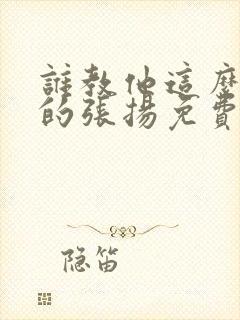 誰教他這麼
的張揚免費
隐笛